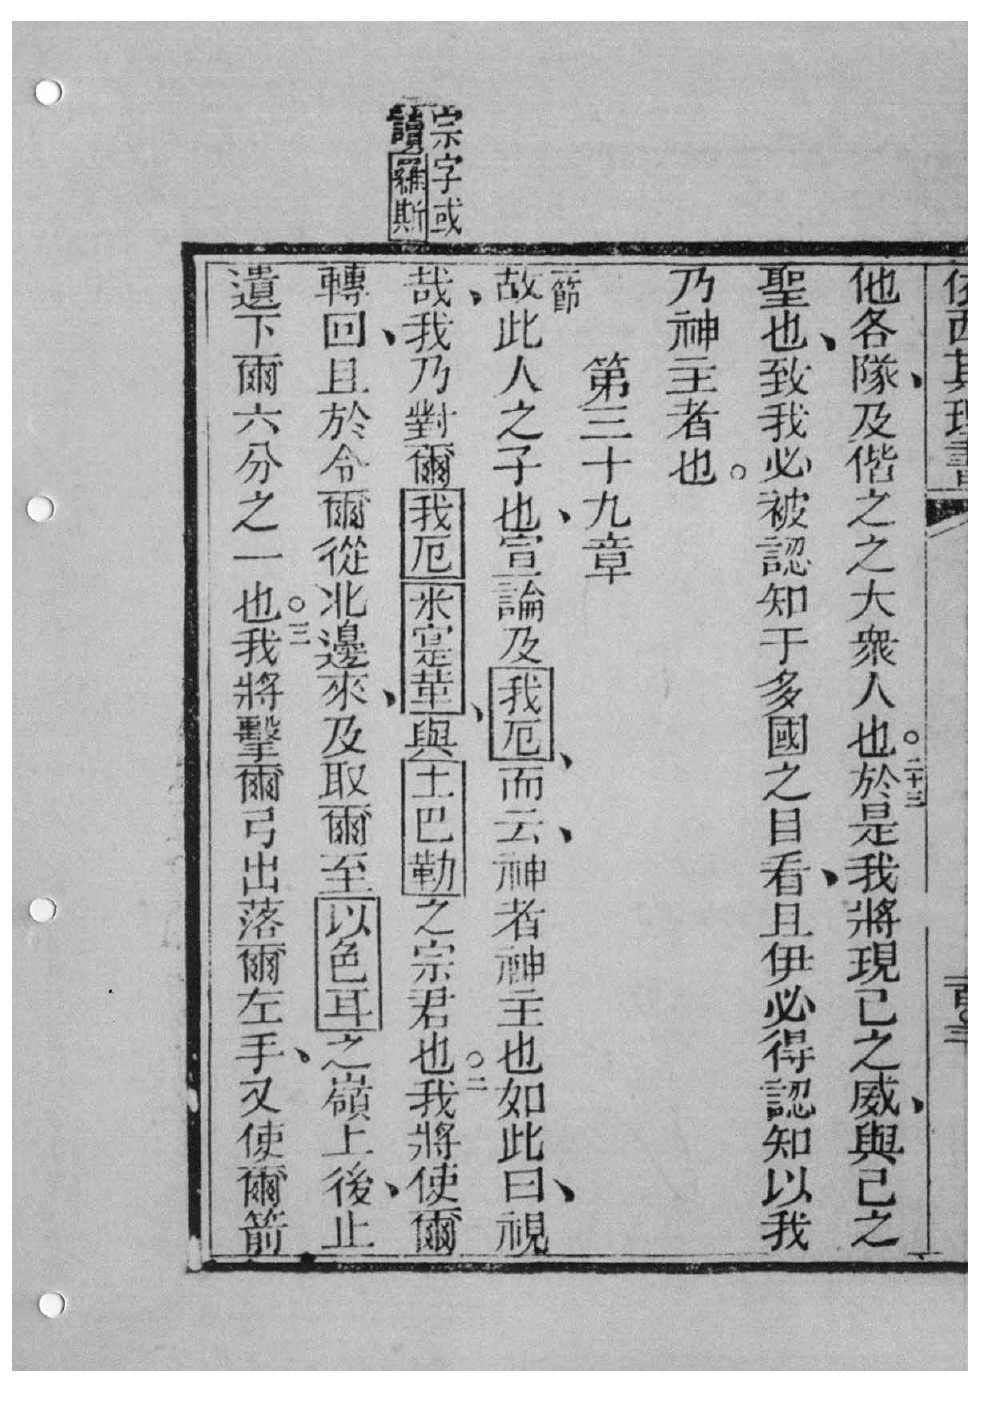 依西其理書
他各隊、及偕之之大衆人也。二十三於是我將現己之威、與己之
聖也、致我必被認知于多國之目看、且伊必得認知以我
乃神主者也。
第三十九章
一節故此人之子也、宣論及我厄、而云、神者神主也如此曰、視
哉、我乃對爾我厄米寔華、與土巴勒之宗君也。二我將使爾
轉回、且於令爾從北邊來、及取爾至以色耳之嶺上後、止
遺下爾六分之一也。三我將擊爾弓出落爾左手、又使爾箭
宗字或
讀羅斯